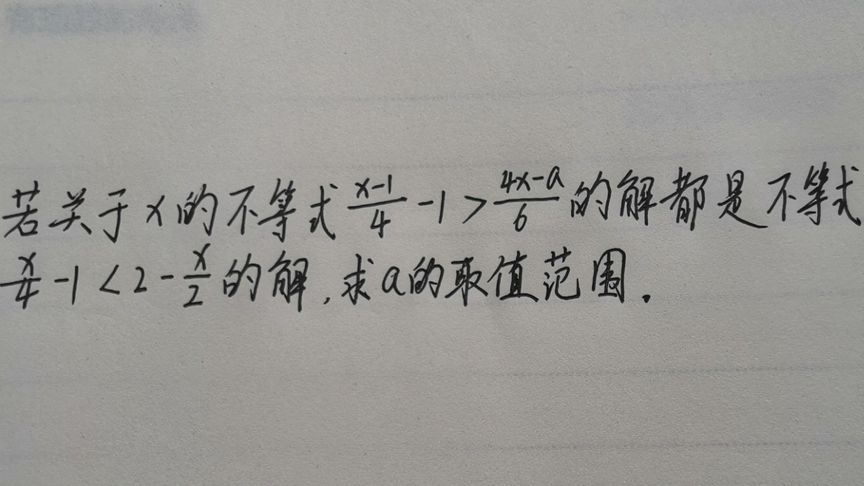 若关于x的不等式 \frac{x-1}{4} -1 > \frac{4x-a}{6} 的解都是不等式
\frac{x}{4} -1 < 2 - \frac{x}{2} 的解,求a的取值范围.